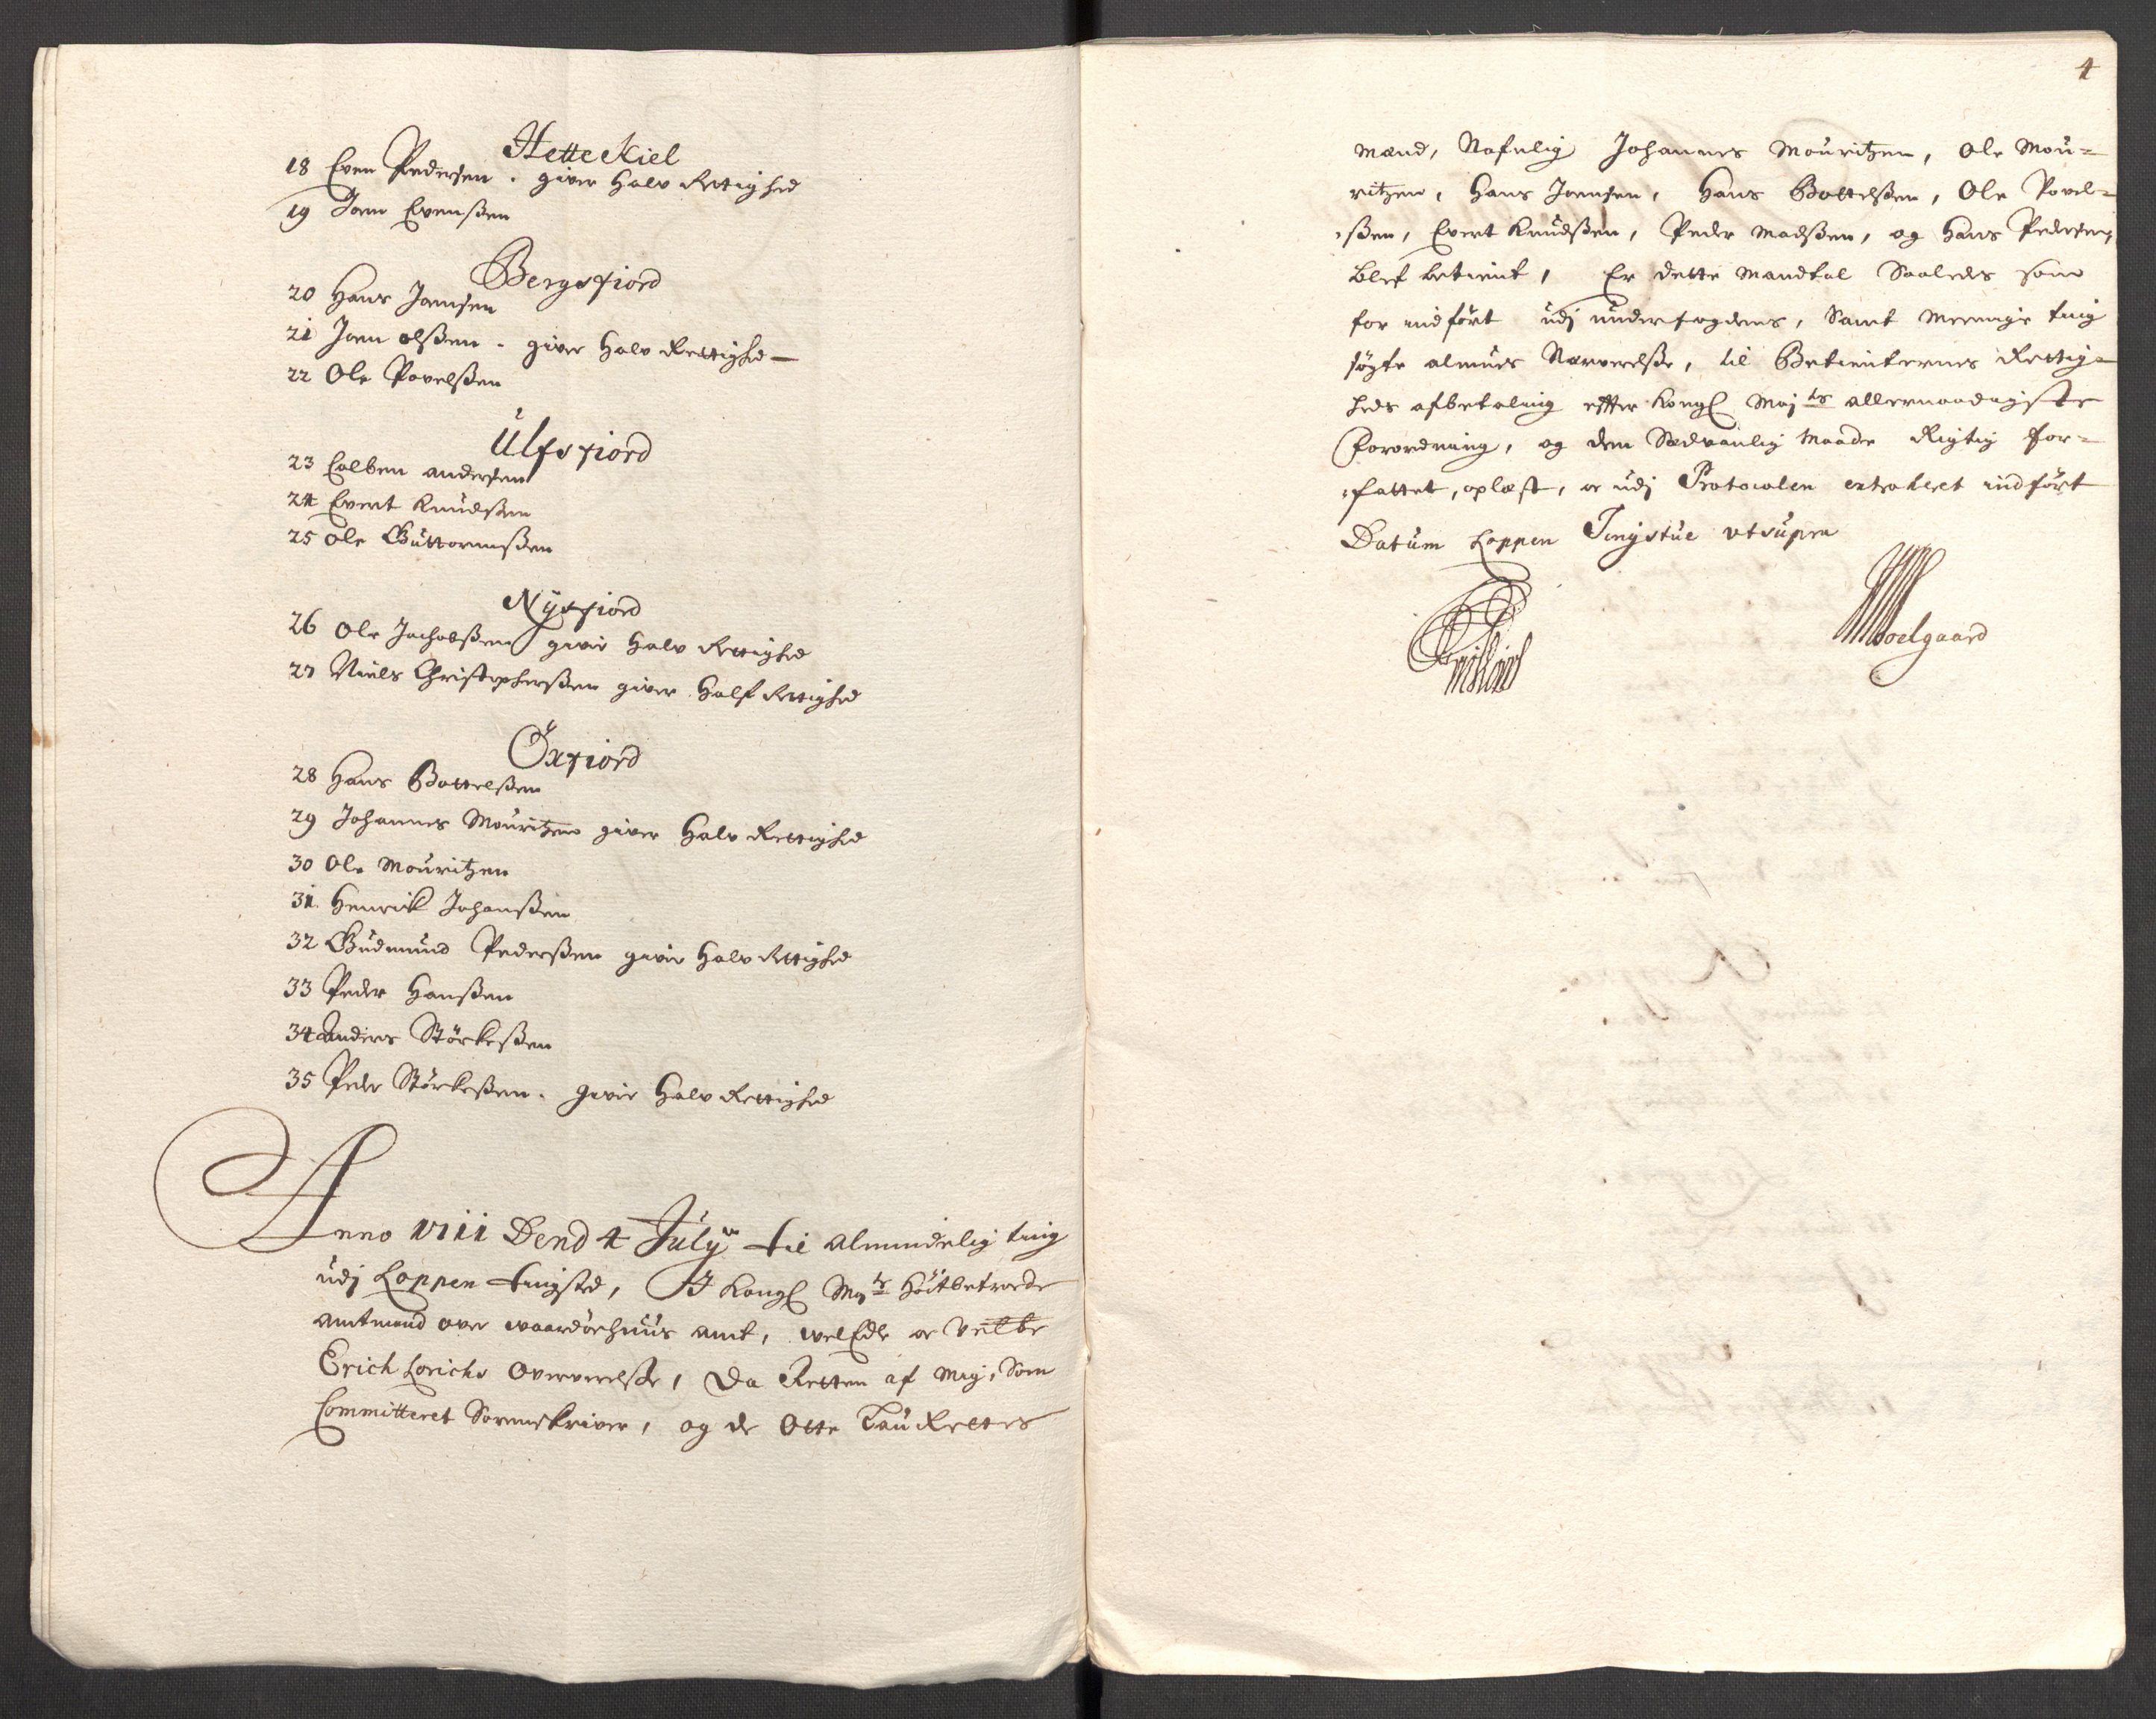 Hetteckiel
18 Even Pedersen. giver Halv Rettighed
19 Joen Evensßen
Bergsfiord
20 Hans Joensen
21 Joen olßen. giver Halv Rettighed
22 Ole Povelßen
Ulfsfiord
23 Colben andersen
24 Evert Knudsßen
25 Ole Guttormsßen
Nysfiord
26 Ole Jachobßen giver Halv Rettighed
27 Niels Christophersßen giver Half Rettighed
Öxfiord
28 Hans Bottelsßen
29 Johannes Mouritzen giver Halv Rettighed
30 Ole Mouritzen
31 Henrick Johansßen
32 Gudmund Pedersßen giver Halv Rettighed
33 Peder Hansßen
34 Anders Störkesßen
35 Peder Störkesßen. giver Halv Rettighed
Anno 1711 Dend 4 July til almindelig ting
udj Loppen tingsted, J Kongl Mayts Höitbetroede
amtmand over waardöehuus amt, welEdle oc Velbr
Erich Lorichs Oververelße, Da Retten af Mig, Som
Committeret Sorenskriver, og de Otte LauRettes
4
Mænd, Nafnlig Johannes Mouritzen, Ole Mou=
ritzen, Hans Joensen, Hans Bottelsßen, Ole Povel=
sßen, Evert Knudsßen, Peder Madsßen, og Hans Pedersen,
blef betient, Er dette Mandtal Saaledes som
for indfört udj underfogdens, Samt Meenige ting
sögte almues Nærverelße, til Betienternes Rettig=
heds afbetaling efter Kongl Mayts allernaadigste
Forordning, og den Sædvanlig Maade Rigtig for=
fattet, oplæst, oc udj Protocolen extraheret indfört
Datum Loppen Tingstue ut supra
Woelgaard